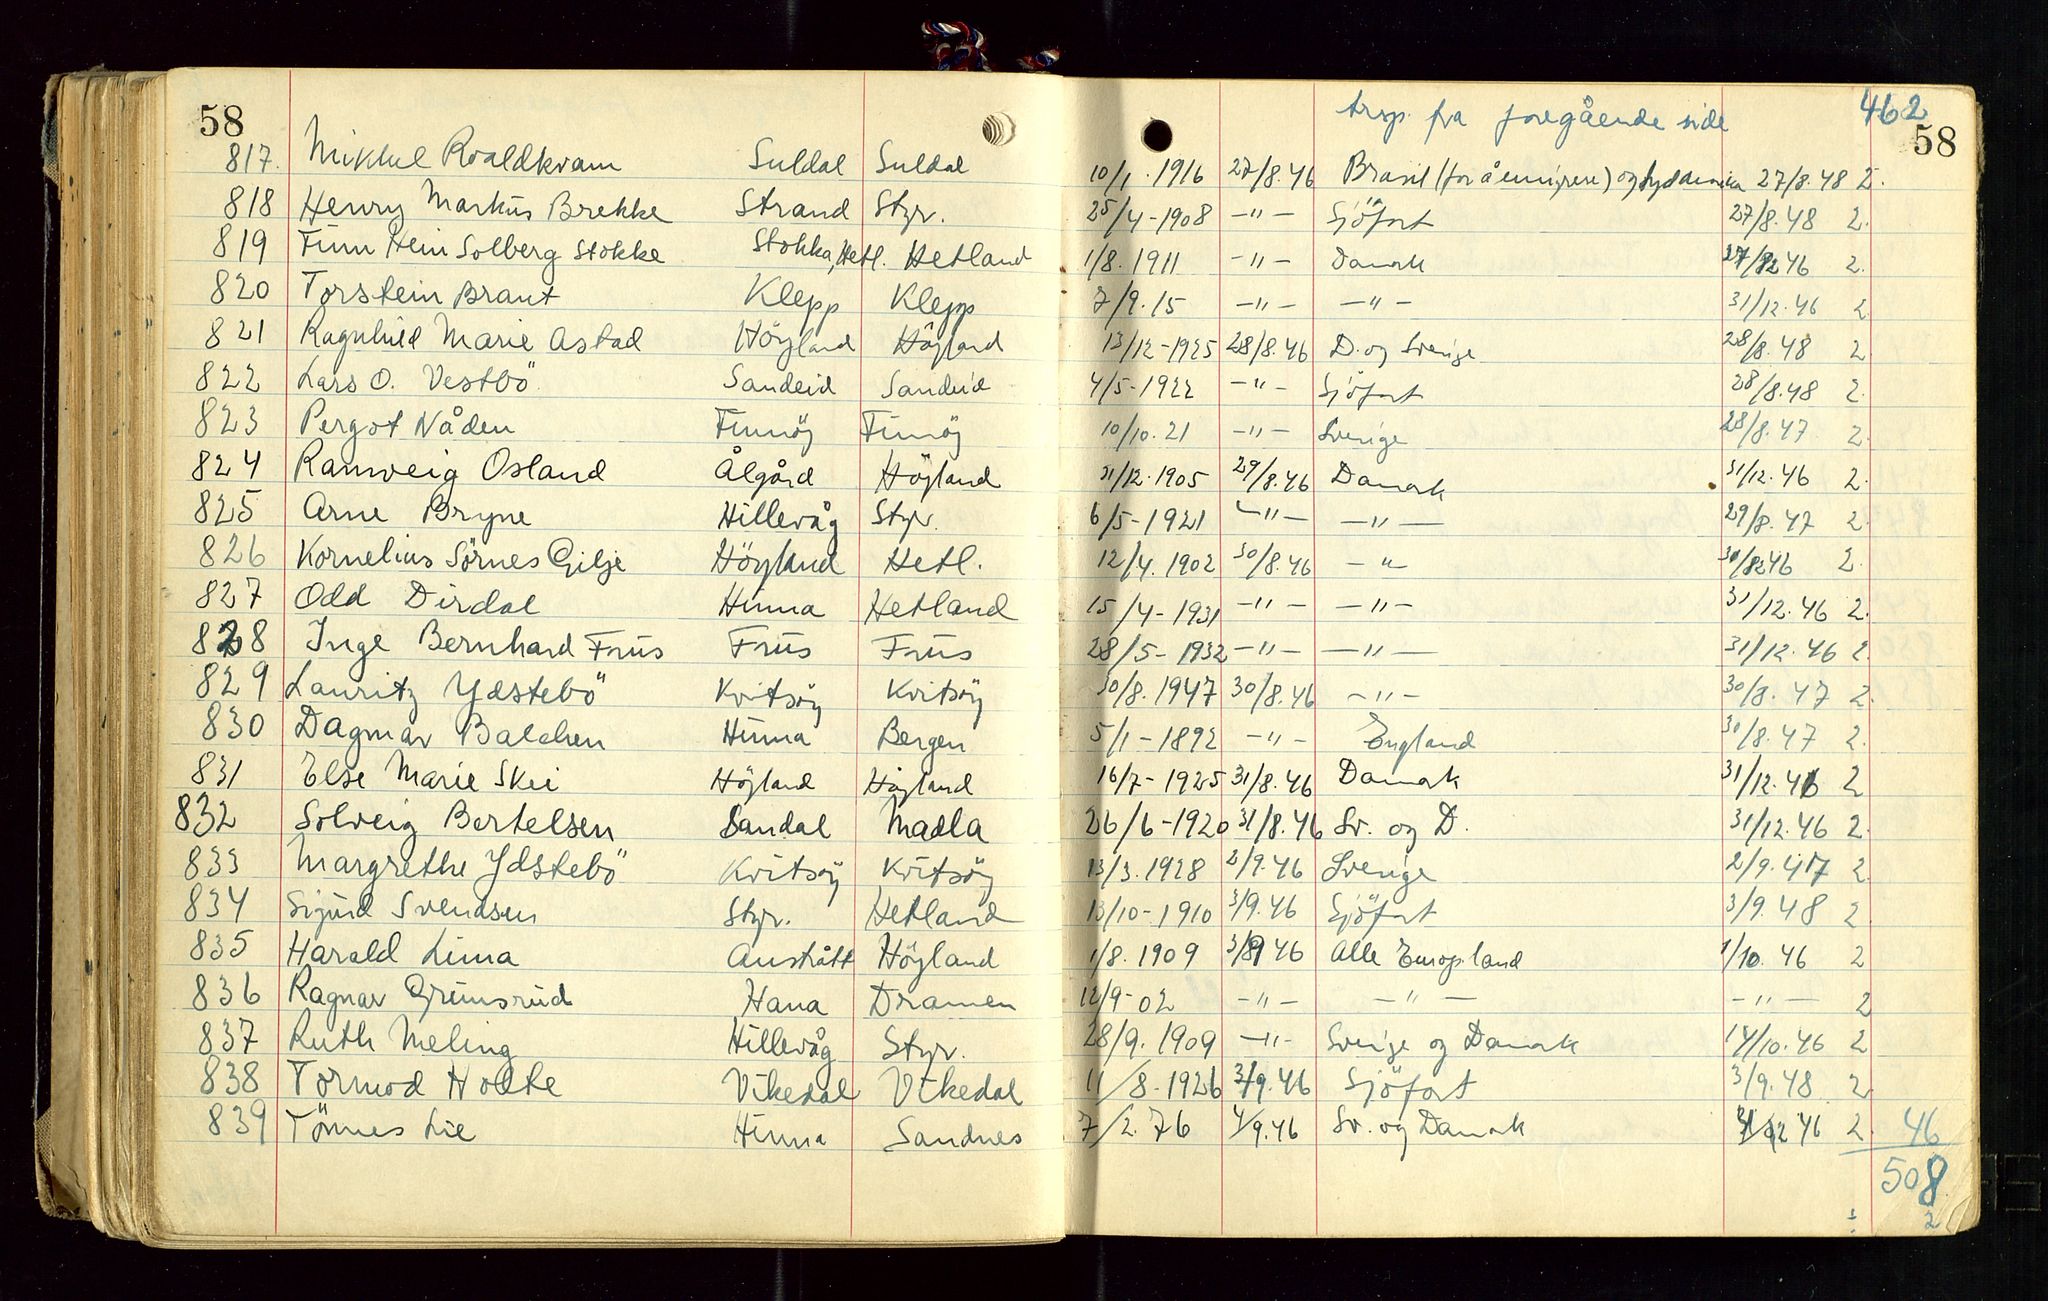 58 trsp. fra foregående side 462 58
817. Mikkel Roaldkvam Suldal Suldal 10/1. 1916 27/8.46 Brasil (for å emigrere) og Sydamerika 27/8.48 2.
818 Henry Markus Brekke Strand Styr. 25/4-1908 -"- Sjöfart 27/8.48 2.
819 Finn Hein Solberg Stokke Stokka, Hetl. Hetland 1/8.1911 -"- Danmk 2.
820 Torstein Braut Klepp Klepp 7/9.15 -"- -"- 31/12.46 2.
821 Ragnhild Marie Astad Höyland Höyland 13/12-1925 28/8.46 D. og Sverige 28/8.48 2
822 Lars O. Vestbö Sandeid Sandeid 4/5-1922 -"- Sjöfart 28/8.48 2.
823 Pergot Nåden Finnöy Finnöy 10/10.21 -"- Sverige 28/8.47 2.
824 Ranveig Osland Ålgård Höyland 31/12.1905 29/8.46 Danmk 31/12.46 2.
825 Arne Bryne Hillevåg Styr. 6/5-1921 -"- -"- 29/8.47 2.
826 Kornelius Sörnes Gilje Höyland Hetl. 12/4.1902 30/8.46 -"- 2.
827 Odd Dirdal Hinna Hetland 15/4-1931 -"- -"- 31/12.46 2.
828 Inge Bernhard Friis Friis Friis 28/5-1932 -"- -"- 31/12.46 2.
829 Lauritz Ydstebö Kvitsöy Kvitsöy 30/8.1947 30/8.46 -"- 30/8.47 2.
830 Dagmar Balchen Hinna Bergen 5/1-1892 -"- England 30/8.47 2.
831 Else Marie Skei Höyland Höyland 16/7-1925 31/8.46 Danmk 31/12.46 2
832 Solveig Bertelsen Sandal Madla 26/6-1920 31/8.46 Sv. og D. 31/12.46 2.
833 Margrethe Ydstebö Kvitsöy Kvitsöy 13/3.1928 2/9.46 Sverige 2/9.47 2
834 Sigurd Svendsen Styr. Hetland 13/10-1910 3/9.46 Sjöfart 3/9.48 2
835 Harald Lima Austrått Höyland 1/8.1909 3/9 46 Alle Europ. land 1/10.46 2
836 Ragnar Grimsrud Hana Dramen 12/9-02 -"- -"- -"- 2
837 Ruth Meling Hillevåg Styr. 28/9.1909 -"- Sverige og Danmk 14/10.46 2
838 Tormod Holte Vikedal Vikedal 11/8-1926 3/9.46 Sjöfart 3/9.48 2
839 Tönnes Lie Hinna Sandnes 7/2.76 4/9.46 Sv. og Danmk 2. 46
508
÷ 2